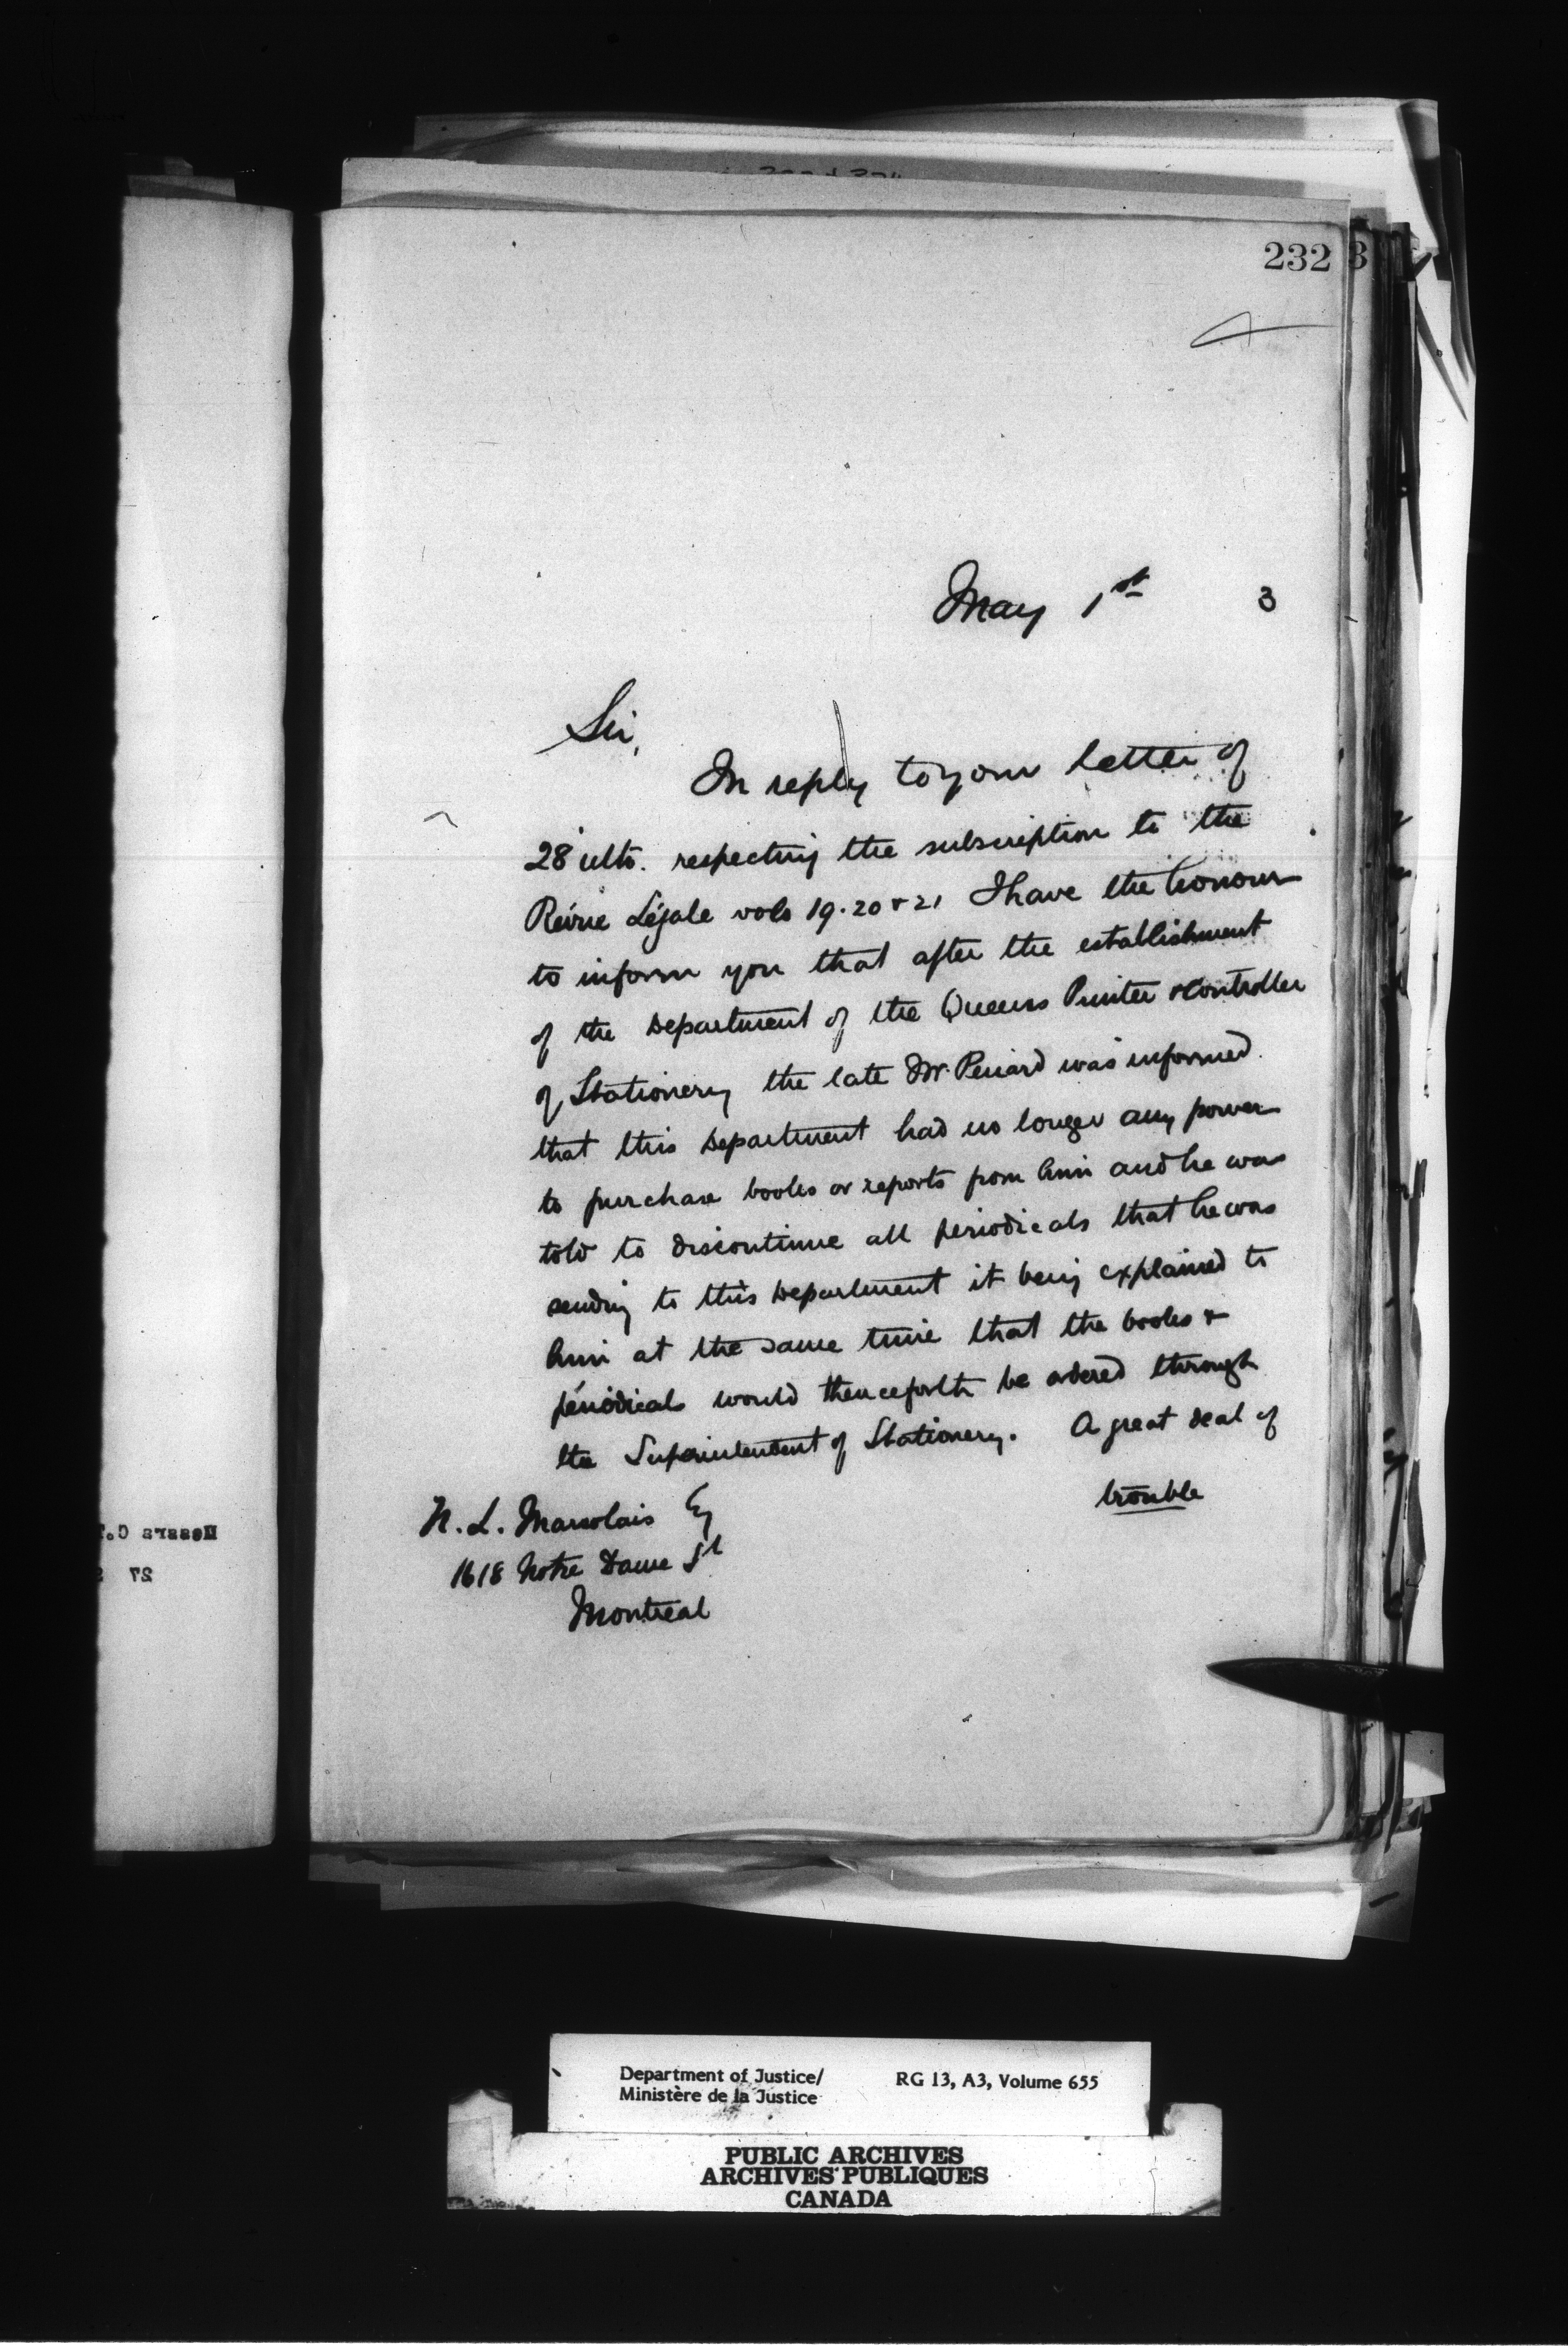 232
May 1st 3
Sir,
In reply to your letter of
28 ulto. respecting the subscription to the
Révue Légale vols 19. 20 & 21 I have the honour
to inform you that after the establishment
of the Department of the Queens Printer & Controller
of Stationery the late Mr. Periard was informed
that this Department had no longer any power
to purchase books or reports from him and he was
told to discontinue all periodicals that he was
sending to this Department it being explained to
him at the same time that the books &
périodicals would thenceforth be ordered through
the Superintendent of Stationery. A great deal of
trouble
N. L. Marsolais Esq
1618 Notre Dame St
Montreal
Messrs C.
27
Department of Justice/ RG 13, A3, Volume 655
Ministère de la Justice
PUBLIC ARCHIVES
ARCHIVES PUBLIQUES
CANADA